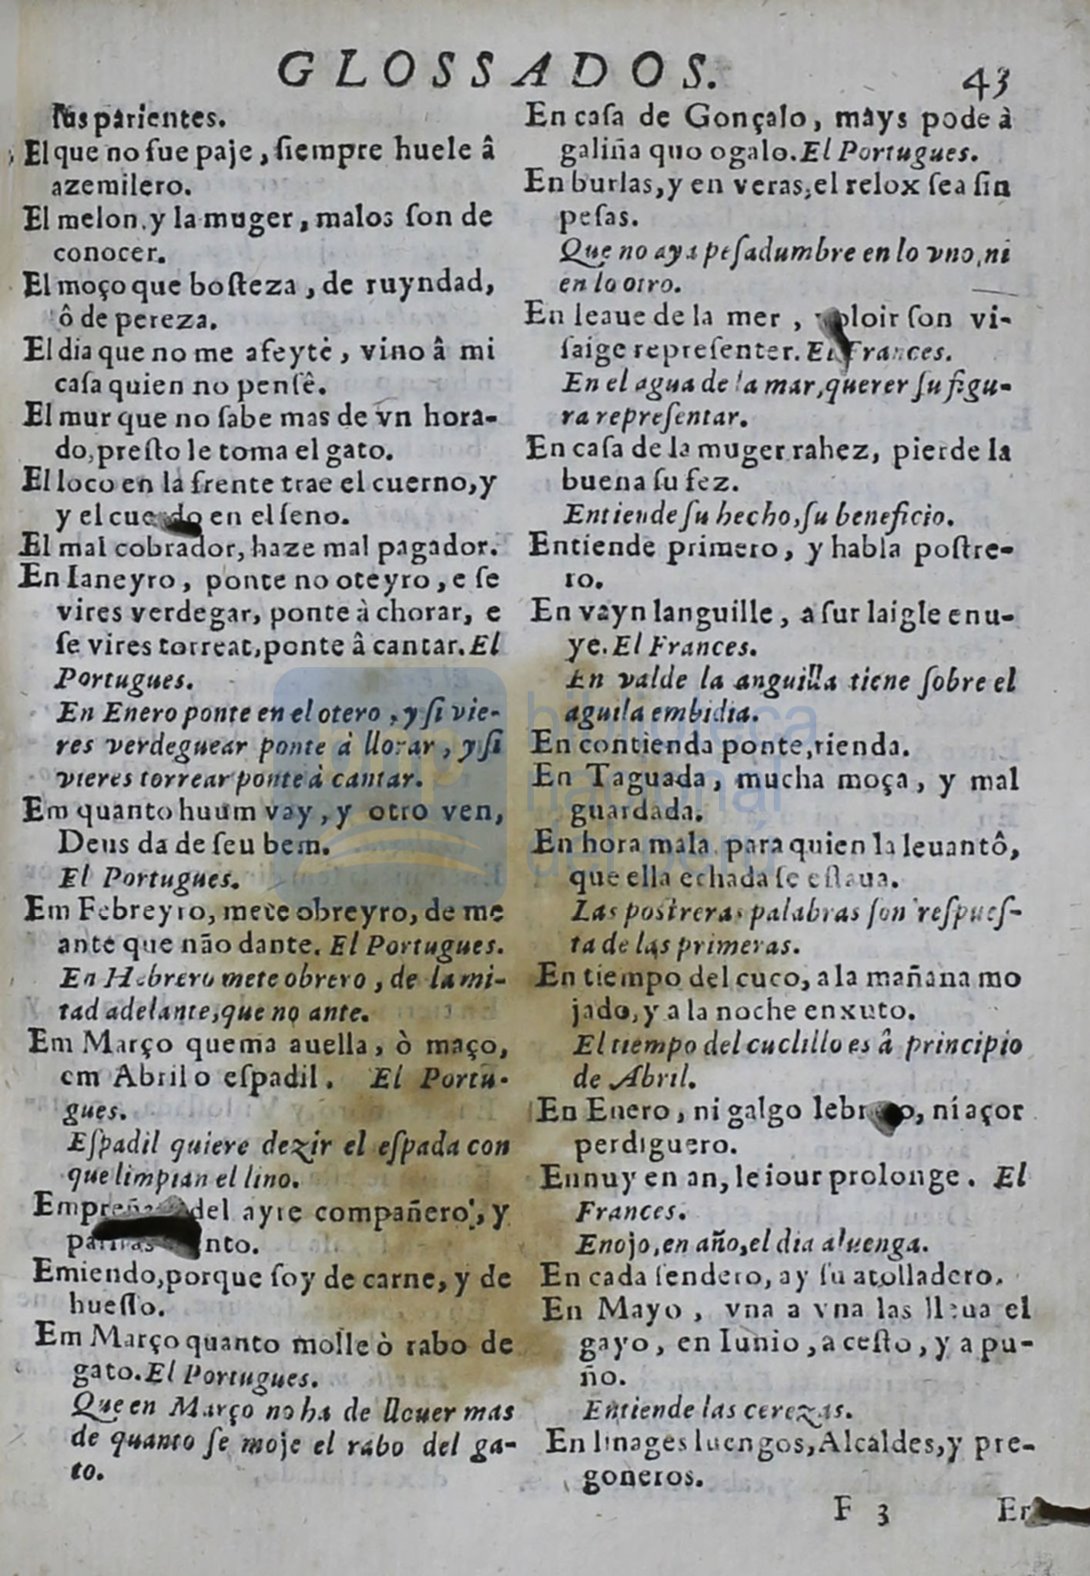 GLOSSADOS. 43
sus parientes.
El que no fue paje, siempre huele â
azemilero.
El melon, y la muger, malos son de
conocer.
El moço que bosteza, de ruyndad,
ô de pereza.
El dia que no me afeytè, vino â mi
casa quien no pensê.
El mur que no sabe mas de vn hora-
do, presto le toma el gato.
El loco en la frente trae el cuerno, y
y el cuerdo en el seno.
El mal cobrador, haze mal pagador.
En Ianeyro, ponte no oteyro, e se
vires verdegar, ponte à chorar, e
se vires torrear, ponte â cantar. El
Portugues.
En Enero ponte en el otero, y si vie-
res verdeguear ponte à llorar, y si
vieres torrear ponte à cantar.
Em quanto huum vay, y otro ven,
Deus da de seu bem.
El Portugues.
Em Febreyro, mete obreyro, de me
ante que não dante. El Portugues.
En Hebrero mete obrero, de la mi-
tad adelante, que no ante.
Em Março quema auella, ò maço,
em Abril o espadil. El Portu-
gues.
Espadil quiere dezir el espada con
que limpian el lino.
Empreña del ayre compañero, y
nto.
Emiendo, porque soy de carne, y de
huesso.
Em Março quanto molle ò rabo de
gato. El Portugues.
Que en Março no ha de llouer mas
de quanto se moje el rabo del ga-
to.
En casa de Gonçalo, mays pode à
galiña quo ogalo. El Portugues.
En burlas, y en veras, el relox sea sin
pesas.
Que no aya pesadumbre en lo vno, ni
en lo otro.
En leaue de la mer, voloir son vi-
saige representer. El Frances.
En el agua de la mar, querer su figu-
ra representar.
En casa de la muger rahez, pierde la
buena su fez.
Entiende su hecho, su beneficio.
Entiende primero, y habla postre-
ro.
En vayn languille, a sur laigle enu-
ye. El Frances.
En valde la anguilla tiene sobre el
aguila embidia.
En contienda ponte, rienda.
En Taguada, mucha moça, y mal
guardada.
En hora mala para quien la leuantô,
que ella echada se estaua.
Las postreras palabras son respues-
ta de las primeras.
En tiempo del cuco, a la mañana mo
jado, y a la noche enxuto.
El tiempo del cuclillo es â principio
de Abril.
En Enero, ni galgo lebrero, ni açor
perdiguero.
Ennuy en an, le iour prolonge. El
Frances.
Enojo, en año, el dia aluenga.
En cada sendero, ay su atolladero.
En Mayo, vna a vna las lleua el
gayo, en Iunio, a cesto, y a pu-
ño.
Entiende las cerezas.
En linages luengos, Alcaldes, y pre-
goneros.
F 3
biblioteca
nacional
del perú